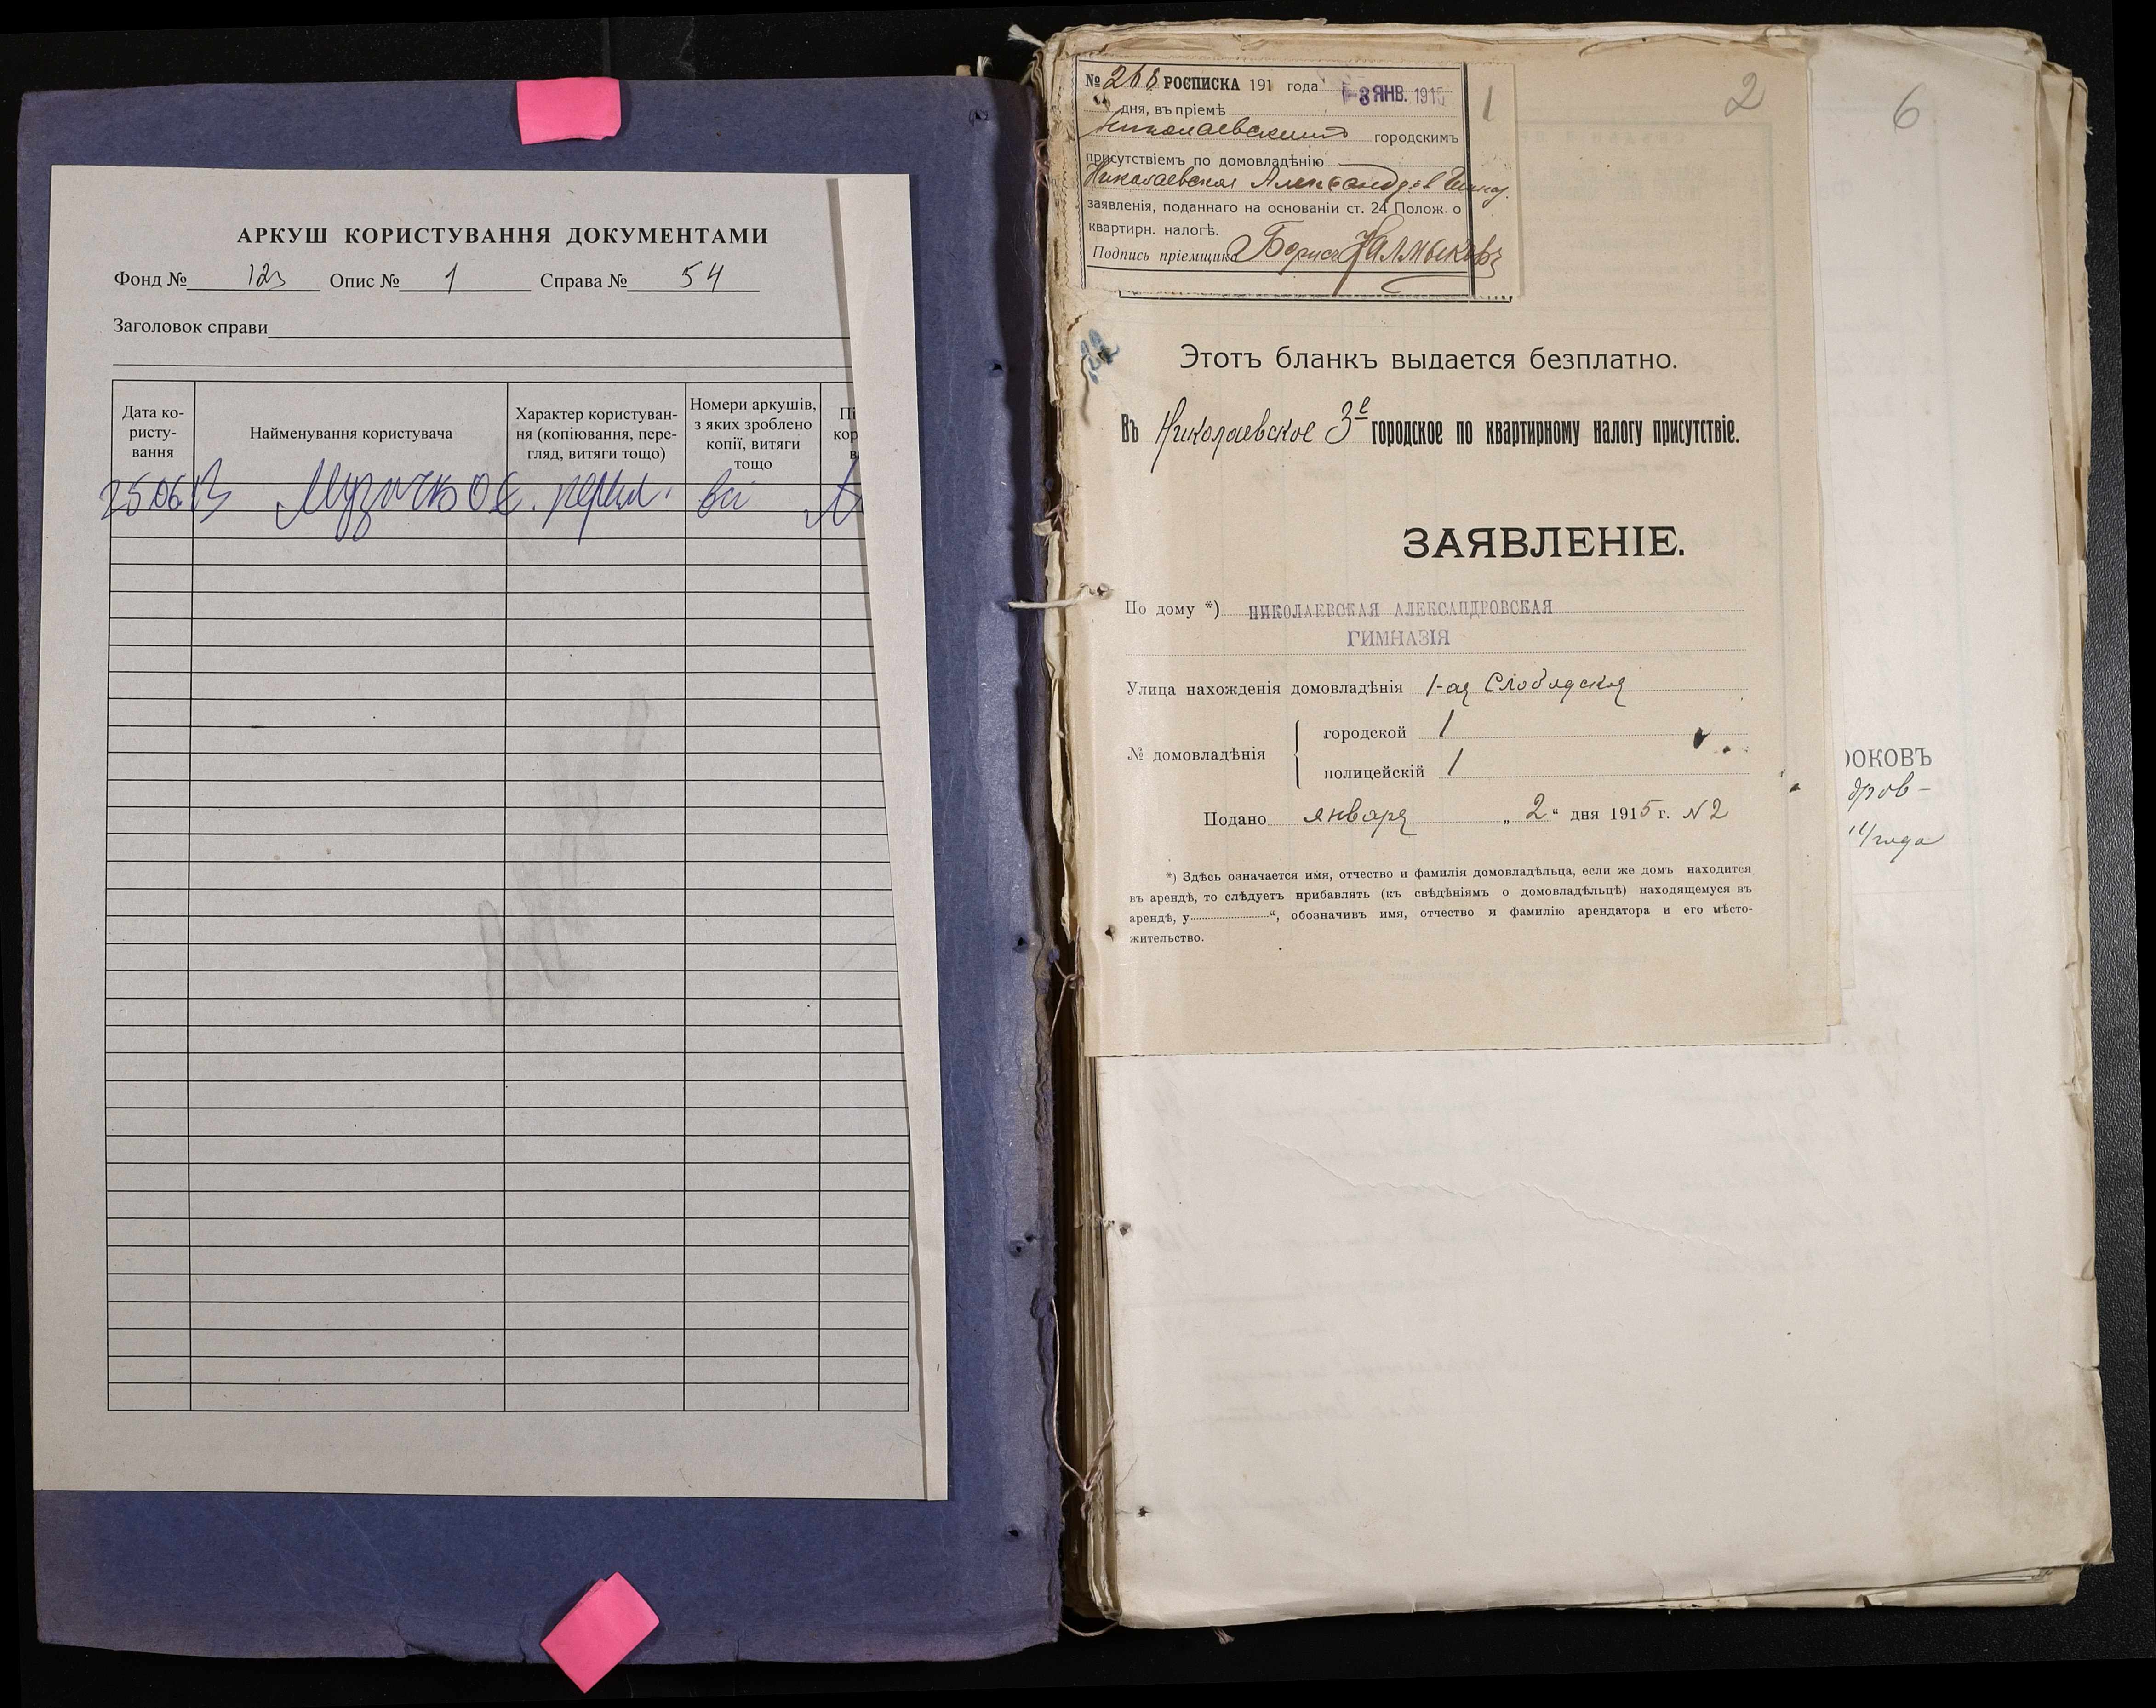 АРКУШ КОРИСТУВАННЯ ДОКУМЕНТАМИ
Фонд № 123 Опис № 1 Справа № 54
Заголовок справи
Дата ко-
ристу-
вання
Найменування користувача
Характер користуван-
ня (копіювання, пере-
гляд, витяги тощо)
Номери аркушів,
з яких зроблено
копії, витяги
тощо
Пі
кор
в
25.06.13 Музичко О.Є. всі
№ 268 РОСПИСКА 191 года -3 ЯНВ. 1915
дня, въ пріемѣ
Николаевскимъ городскимъ
присутствіемъ по домовладѣнію
Николаевская Александров. Гимназ.
заявленія, поданнаго на основаніи ст. 24 Полож. о
квартирн. налогѣ.
Подпись пріемщика Борис Калмыковъ
1
2
6
Этотъ бланкъ выдается безплатно.
Въ Николаевское 3е городское по квартирному налогу присутствіе.
ЗАЯВЛЕНІЕ.
По дому *) НИКОЛАЕВСКАЯ АЛЕКСАНДРОВСКАЯ
ГИМНАЗІЯ
Улица нахожденія домовладѣнія 1-ая Слободская
№ домовладѣнія
городской 1
полицейскій 1
Подано января „ 2 “ дня 1915 г. N2
*) Здѣсь означается имя, отчество и фамилія домовладѣльца, если же домъ находится
въ арендѣ, то слѣдуетъ прибавлять (къ свѣдѣніямъ о домовладѣльцѣ) находящемуся въ
арендѣ, у “, обозначивъ имя, отчество и фамилію арендатора и его мѣсто-
жительство.
РОКОВЪ
дров-
14 года